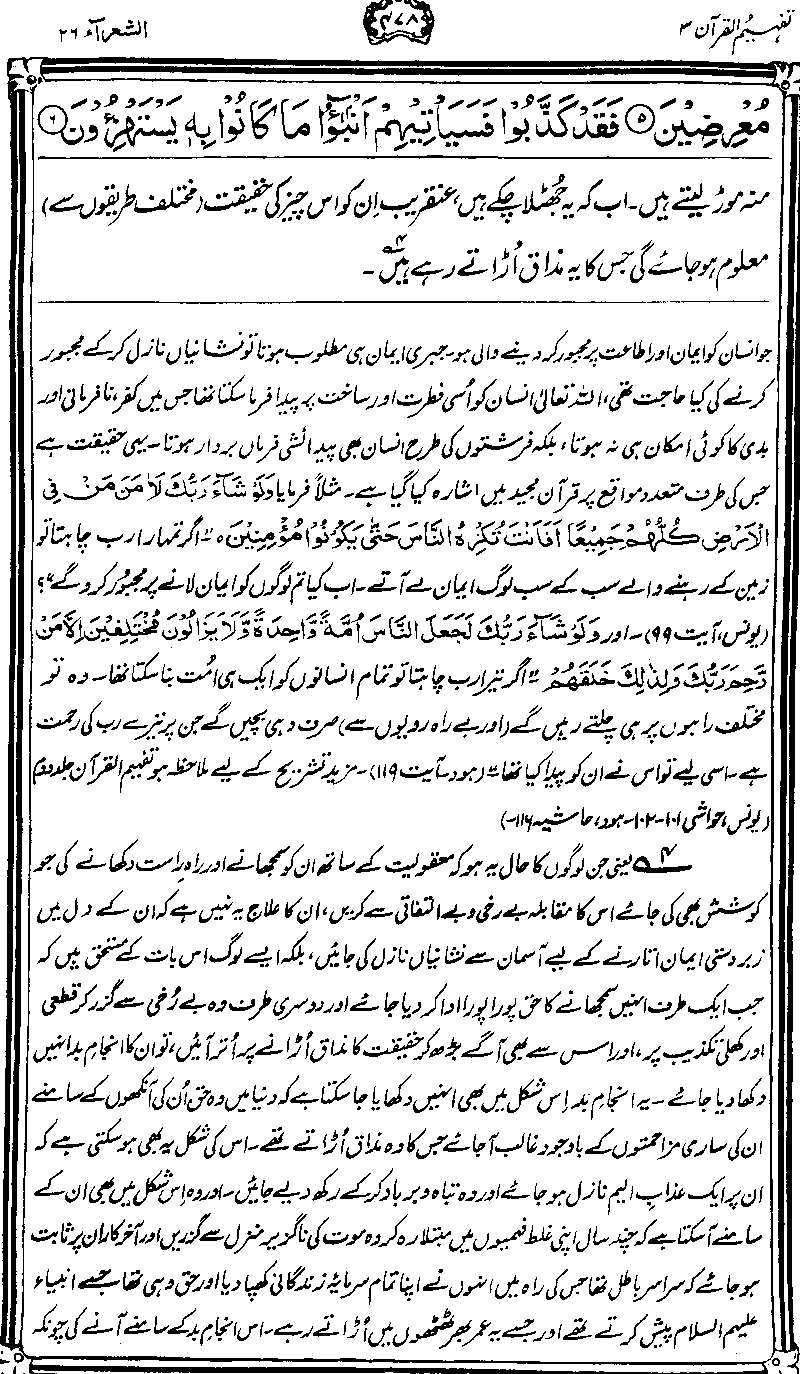 تفہیم القرآن ۳
۴۷۸
الشعرآء ۲۶
مُعْرِضِيْنَ ۝۵ فَقَدْ كَذَّبُوْا فَسَيَاْتِيْهِمْ اَنْۢبٰٓؤُا مَا كَانُوْا بِهٖ يَسْتَهْزِءُوْنَ ۝۶
منہ موڑ لیتے ہیں۔ اب کہ یہ جُھٹلا چکے ہیں، عنقریب اِن کو اس چیز کی حقیقت (مختلف طریقوں سے)
معلوم ہو جائے گی جس کا یہ مذاق اُڑاتے رہے ہیں۴۔
جو انسان کو ایمان اور اطاعت پر مجبور کر دینے والی ہو۔ جبری ایمان ہی مطلوب ہوتا تو نشانیاں نازل کر کے مجبور
کرنے کی کیا حاجت تھی، اللہ تعالیٰ انسان کو اُسی فطرت اور ساخت پر پیدا فرما سکتا تھا جس میں کفر، نافرمانی اور
بدی کا کوئی امکان ہی نہ ہوتا، بلکہ فرشتوں کی طرح انسان بھی پیدائشی فرماں بردار ہوتا۔ یہی حقیقت ہے
جس کی طرف متعدد مواقع پر قرآن مجید میں اشارہ کیا گیا ہے۔ مثلاً فرمایا وَلَوْ شَآءَ رَبُّكَ لَاٰمَنَ مَنْ فِی
الْاَرْضِ كُلُّهُمْ جَمِيْعًا اَفَاَنْتَ تُكْرِهُ النَّاسَ حَتّٰى يَكُوْنُوْا مُؤْمِنِيْنَ ہ "اگر تمہارا رب چاہتا تو
زمین کے رہنے والے سب کے سب لوگ ایمان لے آتے۔ اب کیا تم لوگوں کو ایمان لانے پر مجبور کرو گے"؟
(یونس، آیت ۹۹)۔ اور وَلَوْ شَآءَ رَبُّكَ لَجَعَلَ النَّاسَ اُمَّةً وَّاحِدَةً وَّلَا يَزَالُوْنَ مُخْتَلِفِيْنَ اِلَّا مَنْ
رَّحِمَ رَبُّكَ وَلِذٰلِكَ خَلَقَهُمْ "اگر تیرا رب چاہتا تو تمام انسانوں کو ایک ہی اُمت بنا سکتا تھا۔ وہ تو
مختلف راہوں پر ہی چلتے رہیں گے (اور بے راہ رویوں سے) صرف وہی بچیں گے جن پر تیرے رب کی رحمت
ہے۔ اسی لیے تو اس نے ان کو پیدا کیا تھا" (ہود۔ آیت ۱۱۹)۔ مزید تشریح کے لیے ملاحظہ ہو تفہیم القرآن جلد دوم
(یونس، حواشی ۱۰۱-۱۰۲۔ ہود، حاشیہ ۱۱۶۔)
۴ یعنی جن لوگوں کا حال یہ ہو کہ معقولیت کے ساتھ ان کو سمجھانے اور راہ راست دکھانے کی جو
کوشش بھی کی جائے اس کا مقابلہ بے رخی و بے التفاتی سے کریں، ان کا علاج یہ نہیں ہے کہ ان کے دل میں
زبردستی ایمان اتارنے کے لیے آسمان سے نشانیاں نازل کی جائیں، بلکہ ایسے لوگ اس بات کے مستحق ہیں کہ
جب ایک طرف انہیں سمجھانے کا حق پورا پورا ادا کر دیا جائے اور دوسری طرف وہ بے رُخی سے گزر کر قطعی
اور کھلی تکذیب پر، اور اس سے بھی آگے بڑھ کر حقیقت کا مذاق اُڑانے پر اُتر آئیں، تو ان کا انجام بد انہیں
دکھا دیا جائے۔ یہ انجام بد اِس شکل میں بھی انہیں دکھایا جا سکتا ہے کہ دنیا میں وہ حق اُن کی آنکھوں کے سامنے
ان کی ساری مزاحمتوں کے باوجود غالب آ جائے جس کا وہ مذاق اُڑاتے تھے۔ اس کی شکل یہ بھی ہو سکتی ہے کہ
ان پر ایک عذاب الیم نازل ہو جائے اور وہ تباہ و برباد کر کے رکھ دیے جائیں۔ اور وہ اِس شکل میں بھی ان کے
سامنے آ سکتا ہے کہ چند سال اپنی غلط فہمیوں میں مبتلا رہ کر وہ موت کی ناگزیر منزل سے گزریں اور آخر کار ان پر ثابت
ہو جائے کہ سراسر باطل تھا جس کی راہ میں انہوں نے اپنا تمام سرمایۂ زندگانی کھپا دیا اور حق وہی تھا جسے انبیاء
علیہم السلام پیش کرتے تھے اور جسے یہ عمر بھر ٹھٹھوں میں اُڑاتے رہے۔ اس انجام بد کے سامنے آنے کی چونکہ